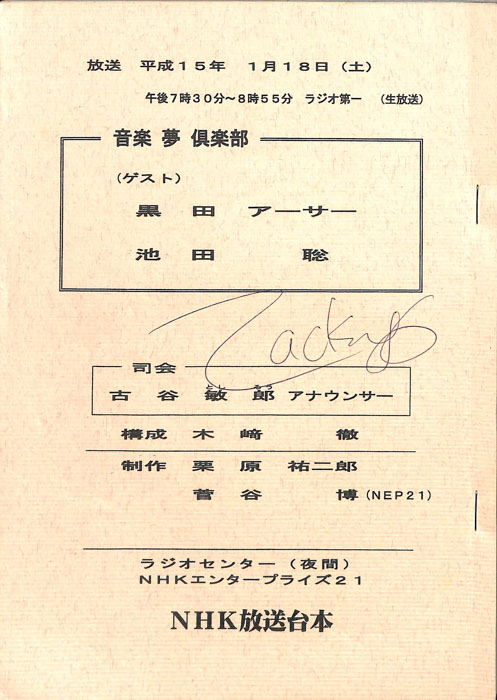 放送 平成15年 1月18日（土）
午後7時30分～8時55分 ラジオ第一 （生放送）
音楽 夢 倶楽部
（ゲスト）
黒田 アーサー
池田 聡
司会
古谷 敏郎 アナウンサー
構成 木﨑 徹
制作 栗原 祐二郎
菅谷 博（NEP21）
ラジオセンター（夜間）
NHKエンタープライズ21
NHK放送台本